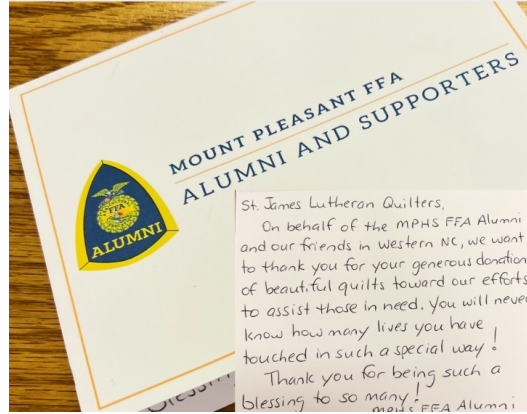 MOUNT PLEASANT FFA
ALUMNI AND SUPPORTERS
FFA
ALUMNI
St. James Lutheran Quilters,
On behalf of the MPHS FFA Alumni
and our friends in Western NC, we want
to thank you for your generous donation
of beautiful quilts toward our efforts
to assist those in need. You will never
know how many lives you have
touched in such a special way!
Thank you for being such a
blessing to so many!
MPHS FFA Alumni